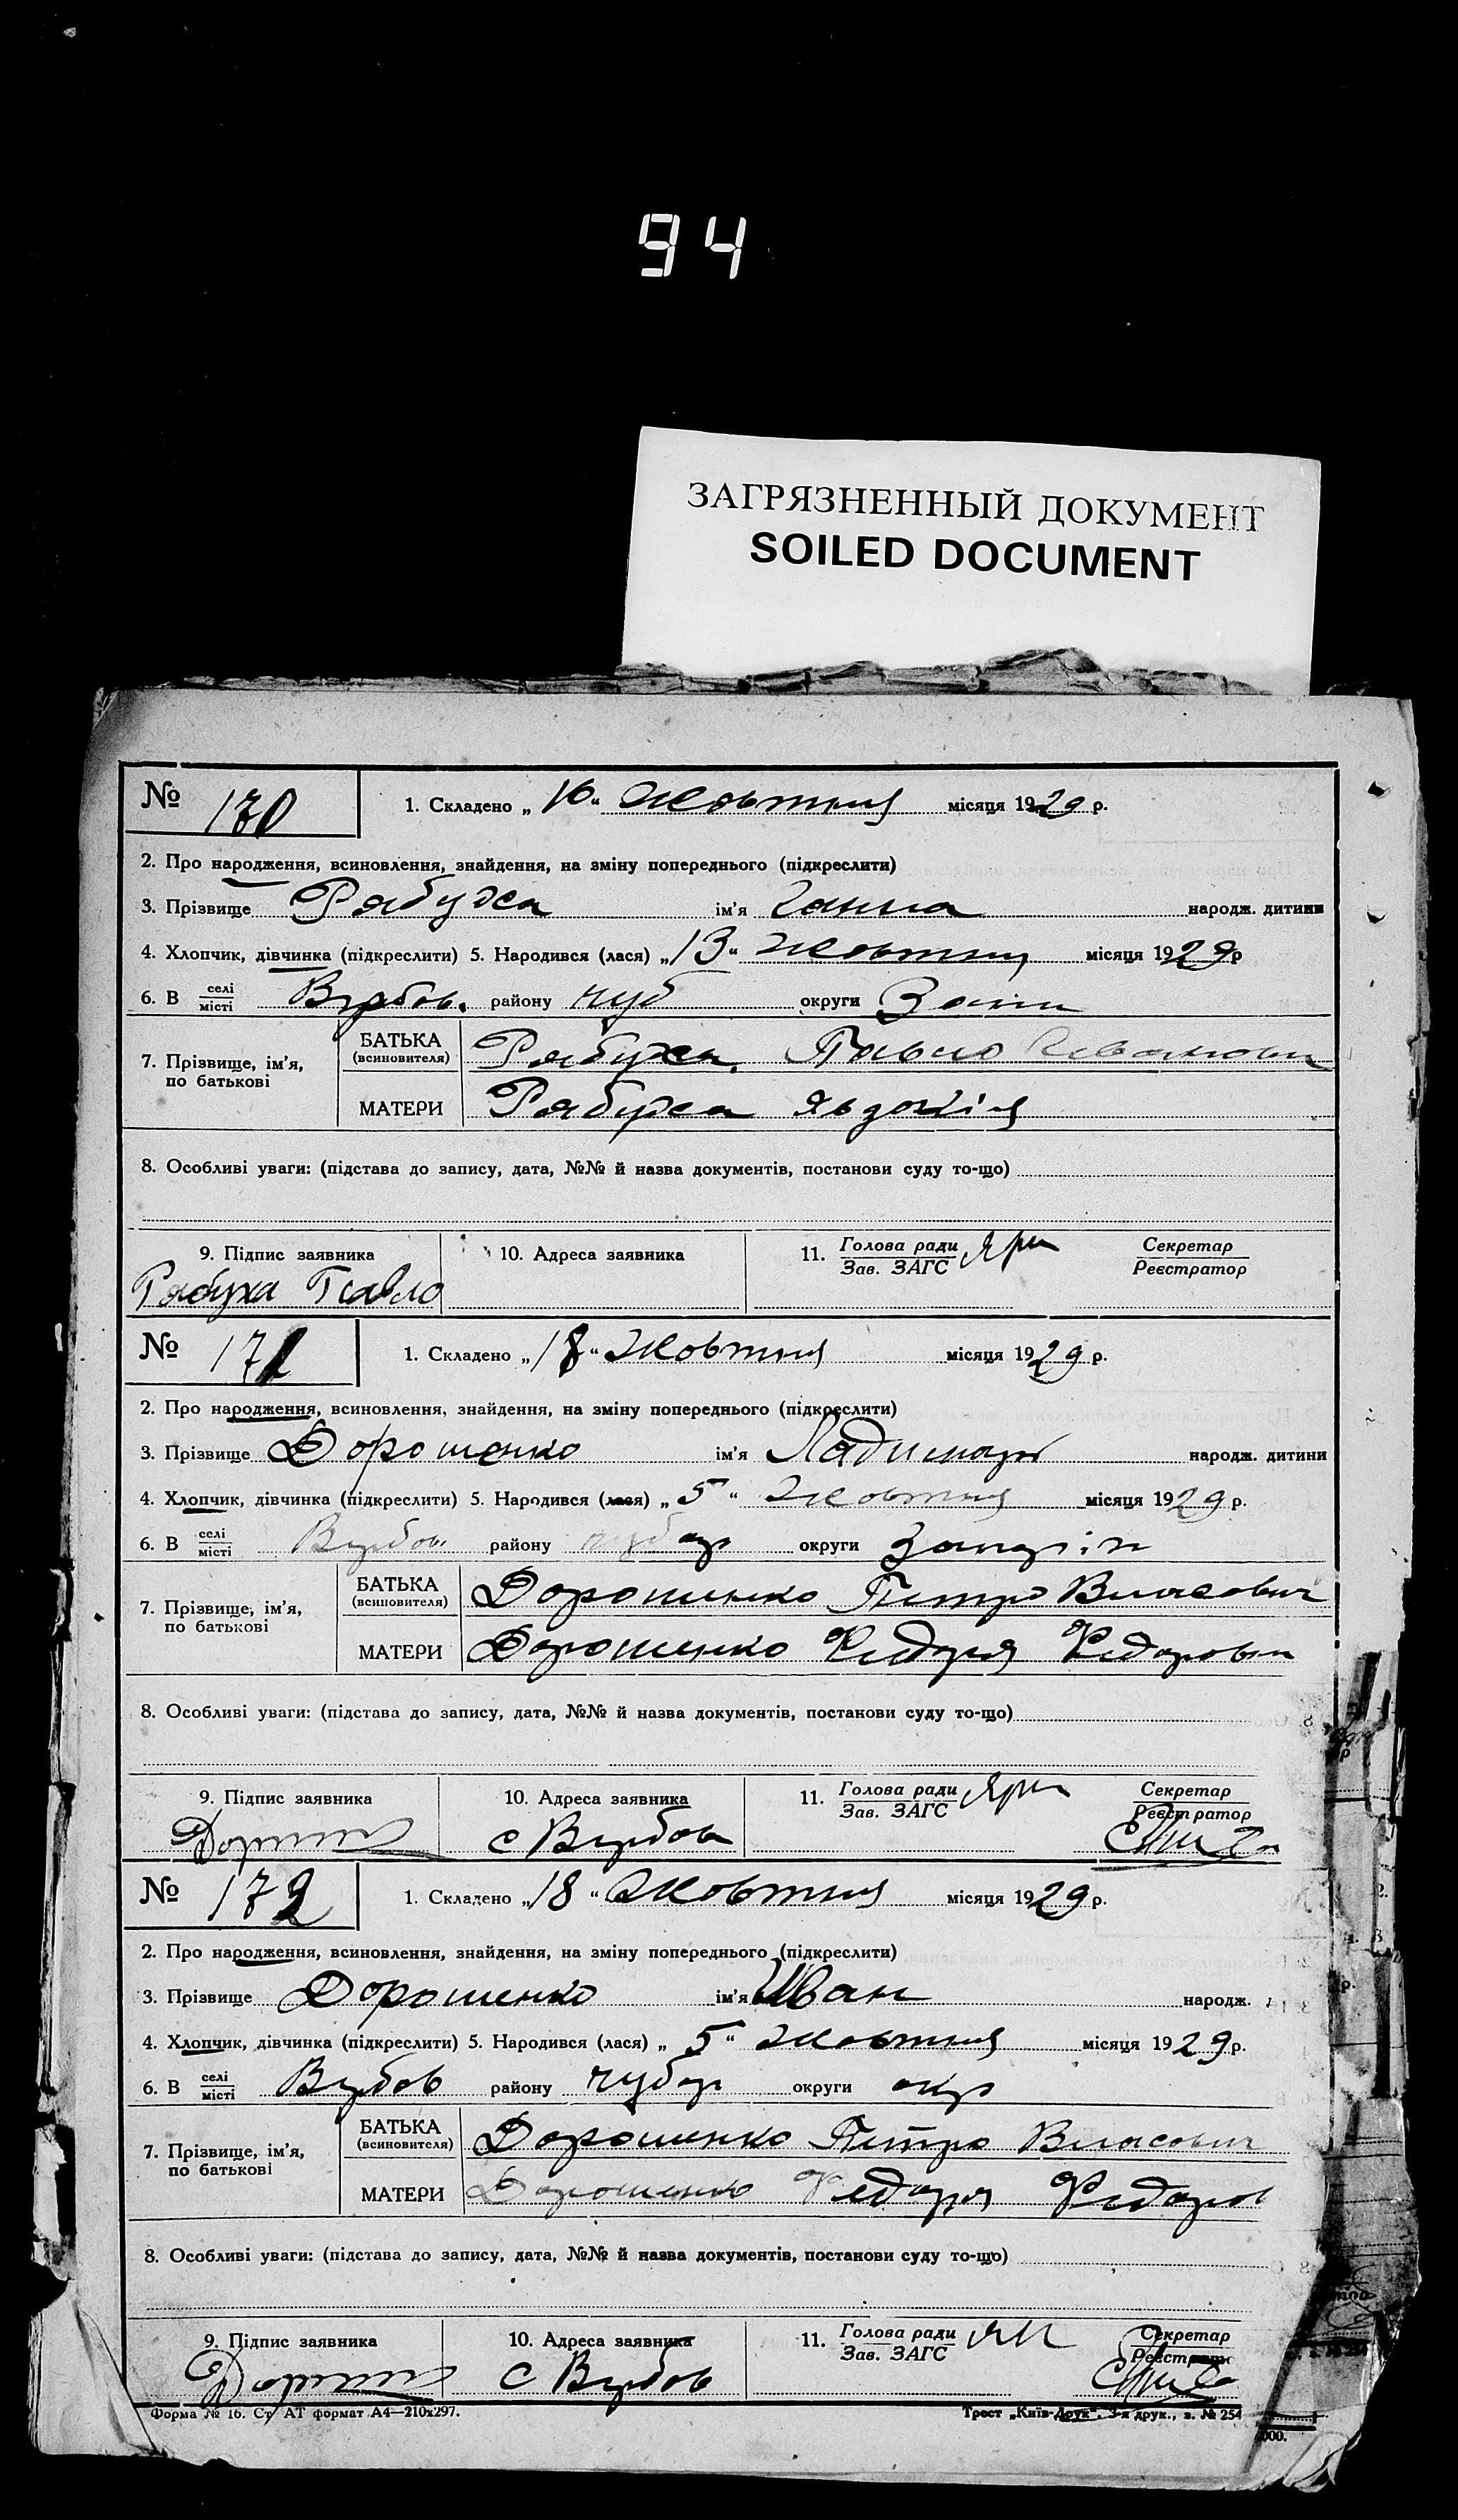 94
ЗАГРЯЗНЕННЫЙ ДОКУМЕНТ
SOILED DOCUMENT
№ 170 1. Складено „16“ Жовтня місяця 1929 р.
2. Про народження, всиновлення, знайдення, на зміну попереднього (підкреслити)
3. Прізвище Рябуха ім'я Ганна народж. дитини
4. Хлопчик, дівчинка (підкреслити) 5. Народився (лася) „13“ Жовтня місяця 1929 р
6. В селі/місті Вербов. району чуб округи Запи
7. Прізвище, ім'я, по батькові
БАТЬКА (всиновителя) Рябуха Павло
МАТЕРИ Рябуха Явдокія
8. Особливі уваги: (підстава до запису, дата, №№ й назва документів, постанови суду то-що)
9. Підпис заявника 10. Адреса заявника 11. Голова ради/Зав. ЗАГС Секретар/Реєстратор
Рябуха Павло
№ 171 1. Складено „18“ Жовтня місяця 1929 р.
2. Про народження, всиновлення, знайдення, на зміну попереднього (підкреслити)
3. Прізвище Дорошенко ім'я народж. дитини
4. Хлопчик, дівчинка (підкреслити) 5. Народився (лася) „5“ Жовтня місяця 1929 р.
6. В селі/місті Вербов. району чубар округи
7. Прізвище, ім'я, по батькові
БАТЬКА (всиновителя) Дорошенко Петро Власович
МАТЕРИ Дорошенко Федоря Федоровн
8. Особливі уваги: (підстава до запису, дата, №№ й назва документів, постанови суду то-що)
9. Підпис заявника 10. Адреса заявника 11. Голова ради/Зав. ЗАГС Секретар/Реєстратор
с Вербов
№ 172 1. Складено „18“ Жовтня місяця 1929 р.
2. Про народження, всиновлення, знайдення, на зміну попереднього (підкреслити)
3. Прізвище Дорошенко ім'я Иван народж.
4. Хлопчик, дівчинка (підкреслити) 5. Народився (лася) „5“ Жовтня місяця 1929 р.
6. В селі/місті Вербов району чубар округи окр
7. Прізвище, ім'я, по батькові
БАТЬКА (всиновителя) Дорошенко Петро Власович
МАТЕРИ Дорошенко Федоря Федоров
8. Особливі уваги: (підстава до запису, дата, №№ й назва документів, постанови суду то-що)
9. Підпис заявника 10. Адреса заявника 11. Голова ради/Зав. ЗАГС Секретар
с Вербов
Форма № 16. Ст АТ формат А4—210х297. Трест „Київ-Друк“. 3-я друк., з. № 254